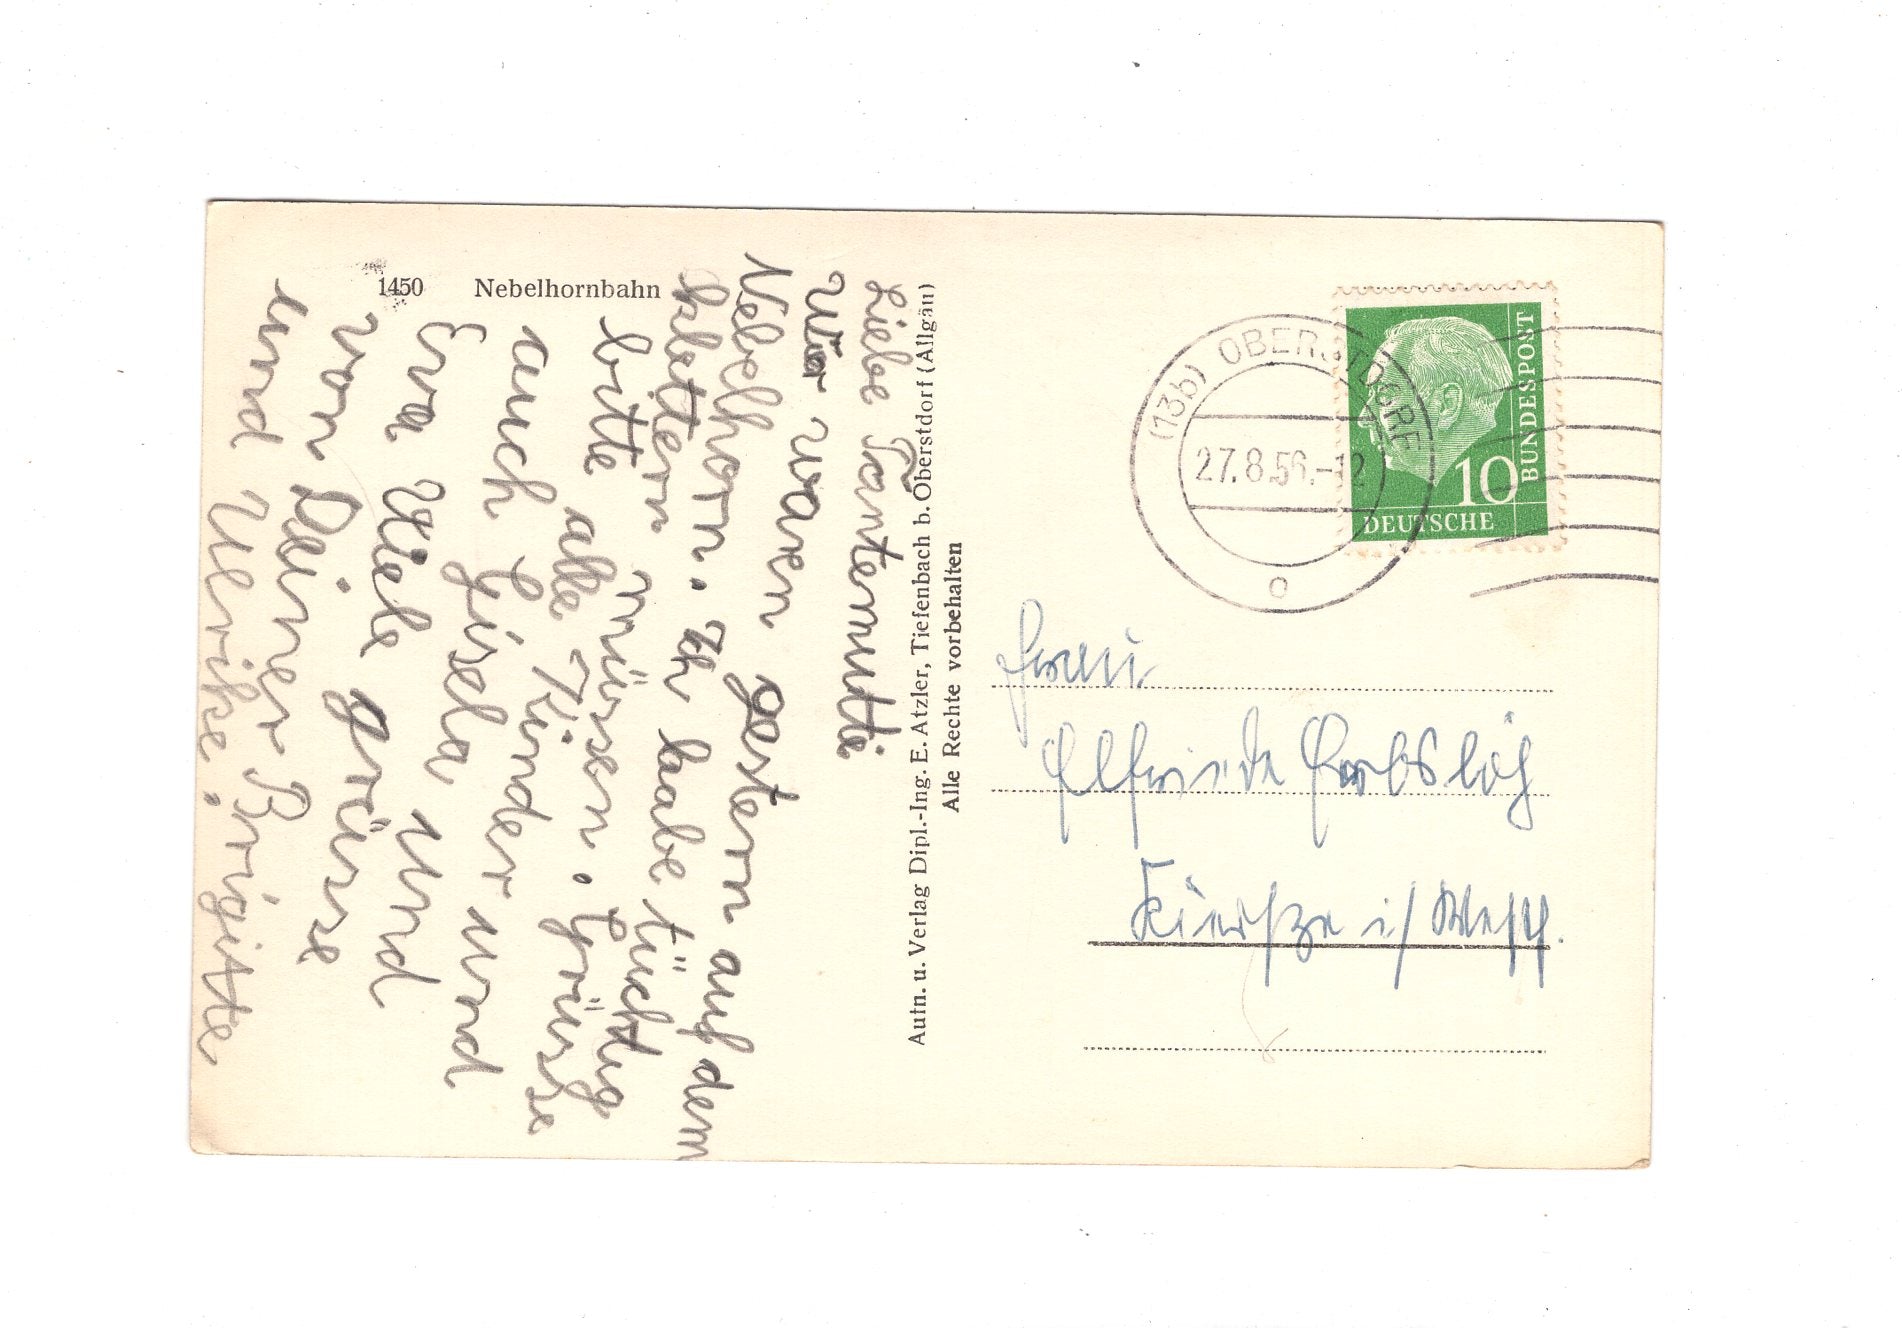 1450 Nebelhornbahn
Liebe Tantemutti
Wir waren gestern auf dem
Nebelhorn. Ich habe tüchtig
klettern müssen. Grüsse
bitte alle Kinder und
auch Gisela und
Eva Viele grüsse
von Deiner Brigitte
und Ulrike.
Autn. u. Verlag Dipl.-Ing. E. Atzler, Tiefenbach b. Oberstdorf (Allgäu)
Alle Rechte vorbehalten
(13b) OBERSTDORF
27.8.56.-12
o
10
DEUTSCHE
BUNDESPOST
Frau
Elfriede Herbsloh
i/ Westf.